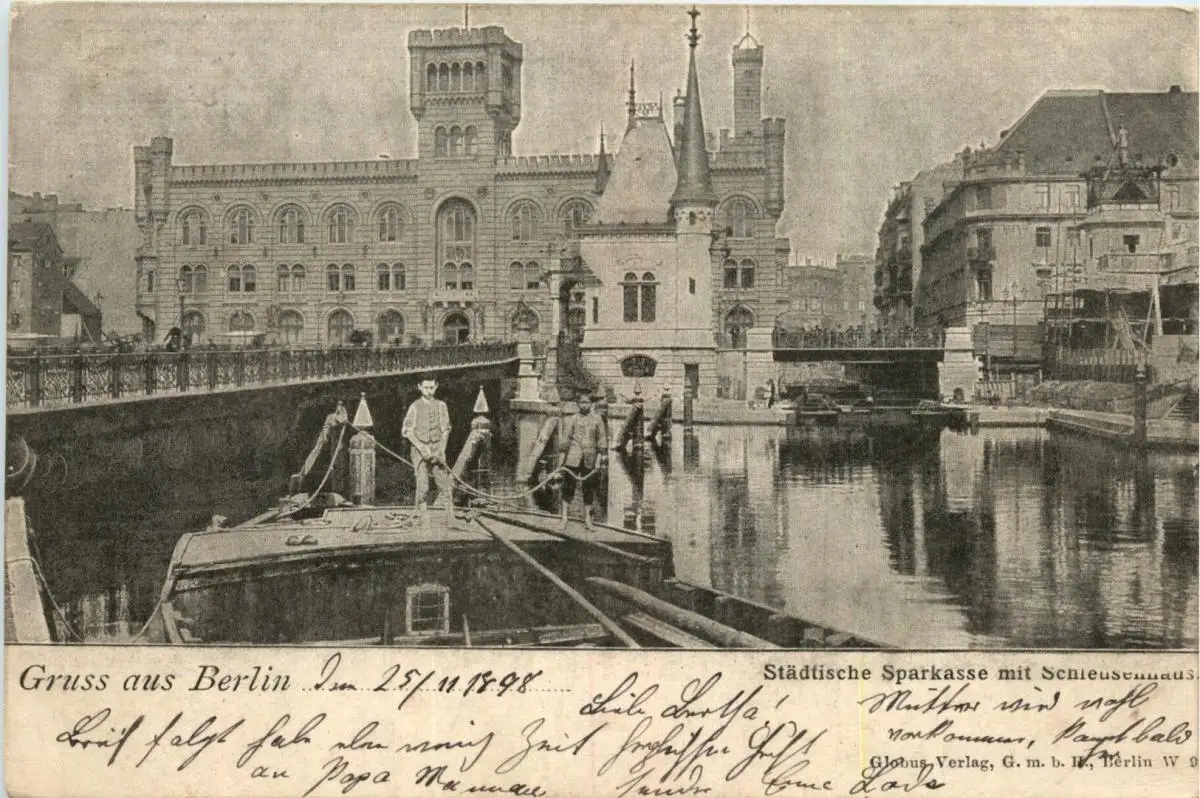 Gruss aus Berlin Den 25/11 1898
Städtische Sparkasse mit Schleusenhaus.
Liebe Bertha!
Brief folgt habe eben wenig Zeit herzlichen
an Papa Mama sendet
Mutter wird wohl
vorkommen,
Globus-Verlag, G. m. b. H., Berlin W 9